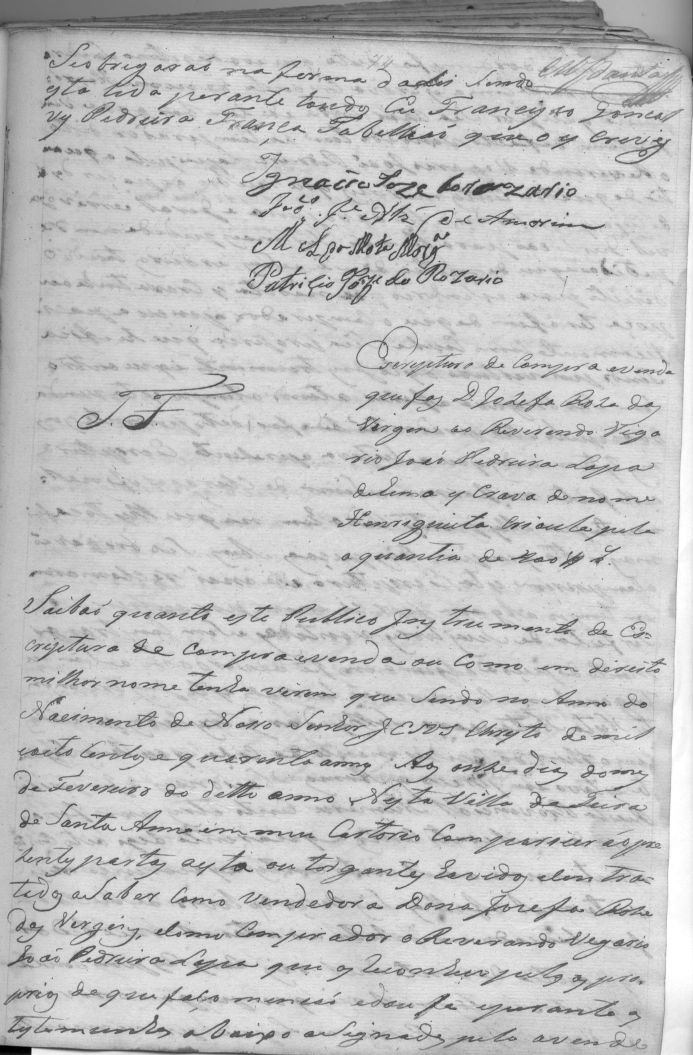 Se obrigaraõ na forma da Lei Sendo
esta lida perante todos Eu Francisco Goncal
ves Pedreira França Tabelliaõ que o escrevi
Ignacio Joze do Rozario
de Amorim
Mota
Patricio Joze do Rozario
Escriptura de Compra evenda
que faz D. Jozefa Roza das
Vergens ao Reverendo Viga
rio Joaõ Pedreira Lapa
de huma escrava de nome
Henriquieta Crioula pela
a quantia de 400$ rs.
T. F.
Saibaõ quantos este Publico Instrumento de Es=
criptura de Compra evenda ou Como em direito
milhor nome tenha virem que Sendo no Anno do
Nacimento de Nosso Senhor JESUS Christo de mil
oito Centos e quarenta annos Aos onze dias do mez
de Fevereiro do ditto anno Nesta Villa da Feira
de Santa Anna em meu Cartorio Compareceraõ pre
zentes partes a esta outorgantes havidos e Contra-
tados a Saber Como Vendedora Dona Jozefa Roza
das Vergens, e Como Comprador o Reverendo Vegario
Joaõ Pedreira Lapa que os reconheço pelos pro
prios de que faço mençaõ e dou fe e perante as
testemunhas abaixo asignadas pela a vende